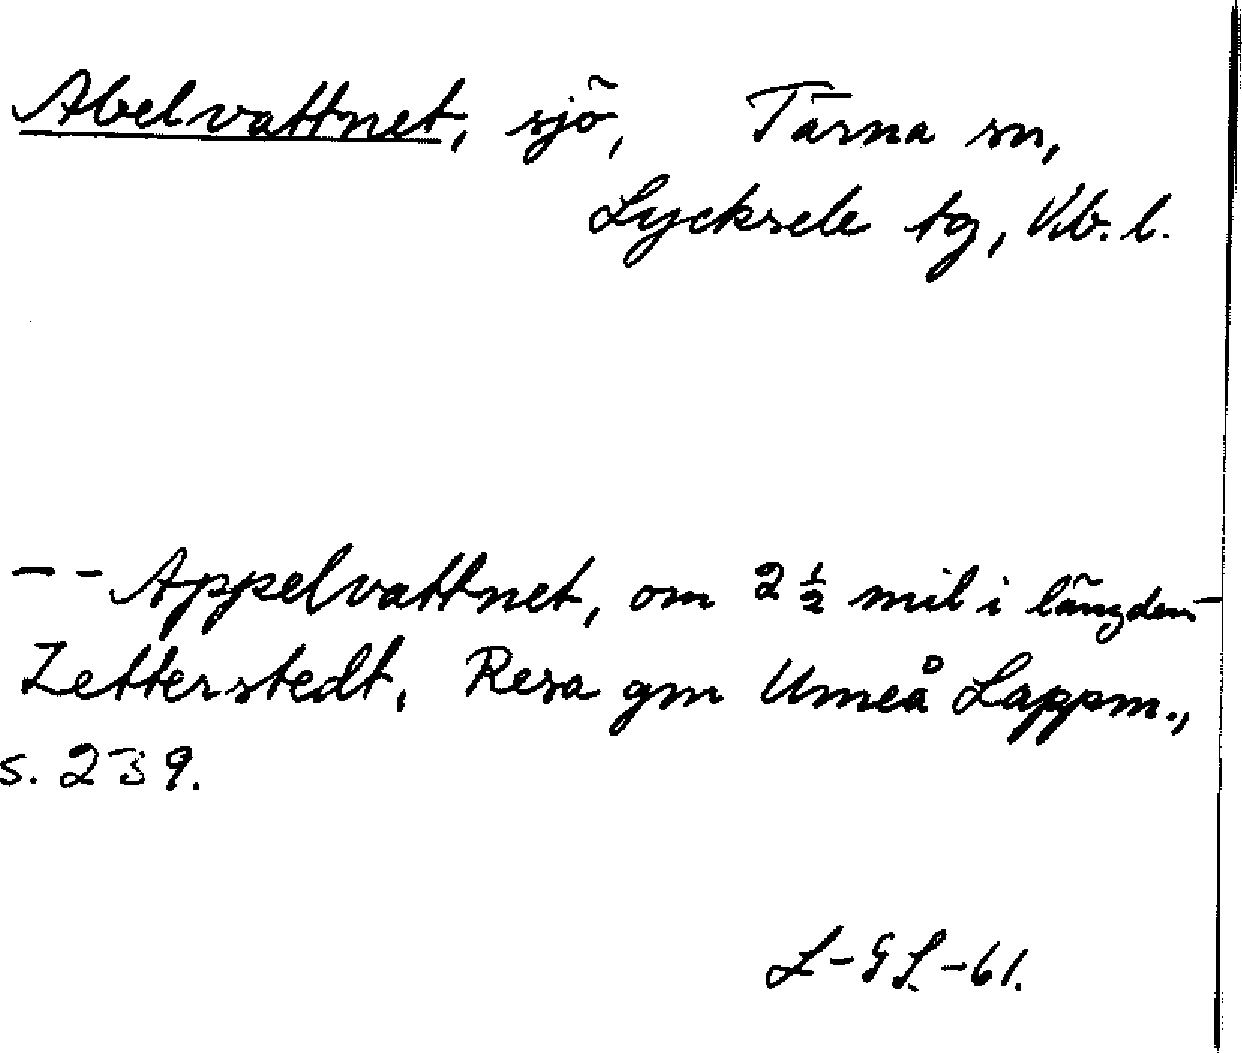 Abelvattnet, sjö, Tärna sn,
Lycksele tg, Vb. l.
-- Appelvattnet, om 2 ½ mil i längden -
Zetterstedt, Resa gm Umeå Lappm.,
s. 239.
L-GL-61.